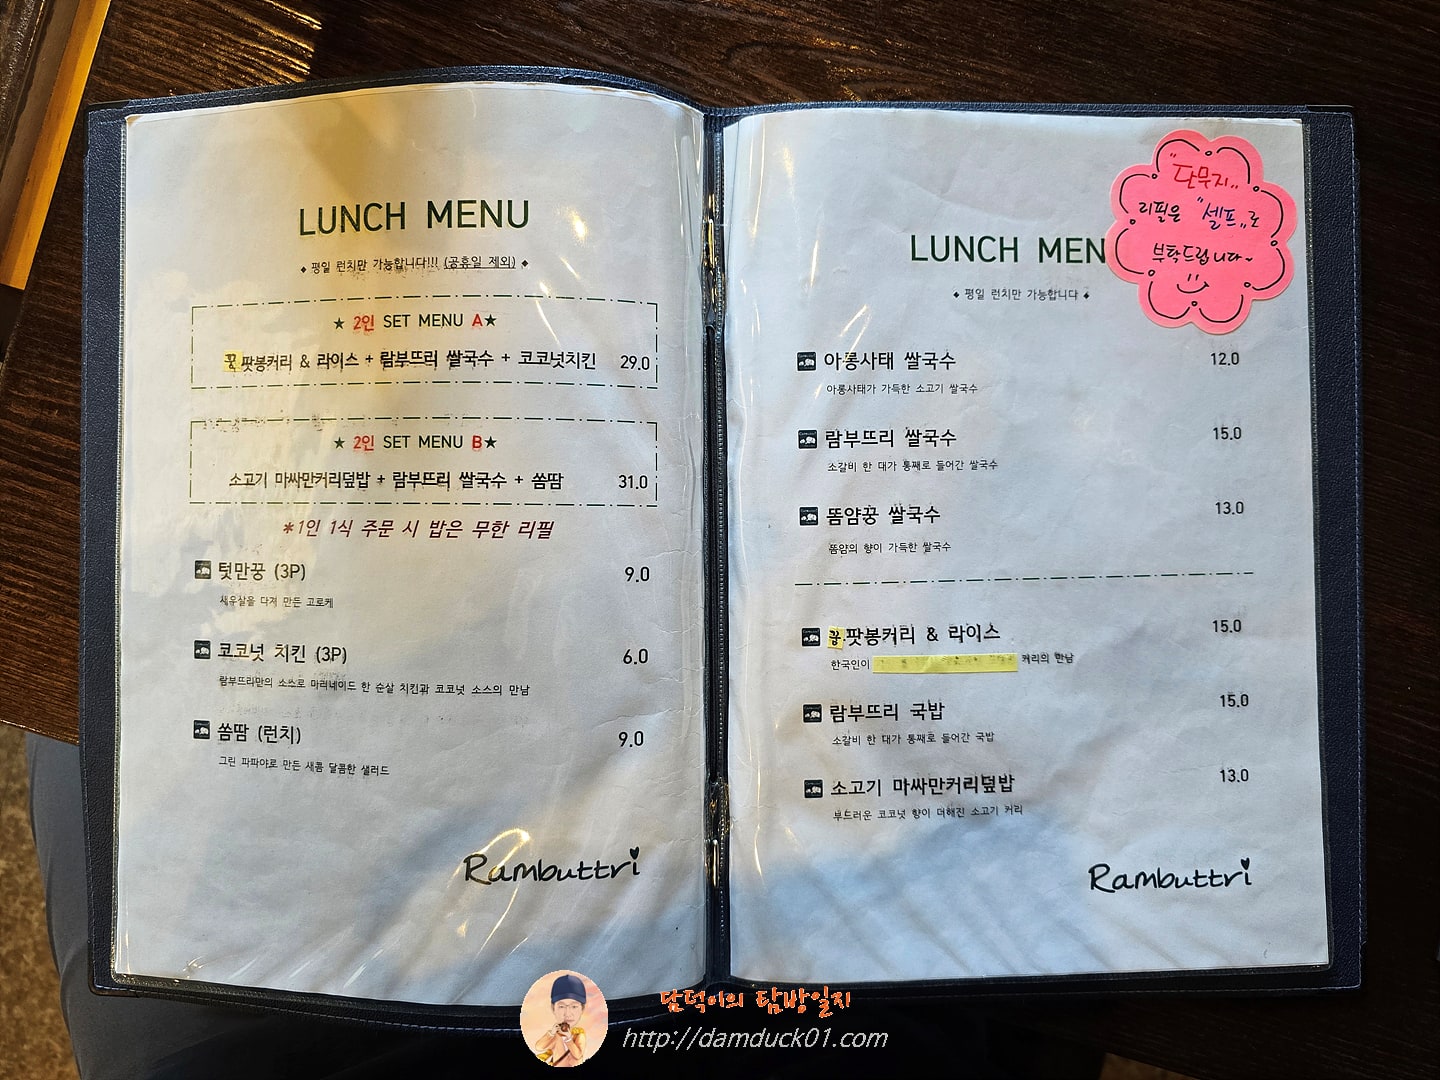 LUNCH MENU
◆ 평일 런치만 가능합니다!!! (공휴일 제외) ◆
★ 2인 SET MENU A★
꿍팟봉커리 & 라이스 + 람부뜨리 쌀국수 + 코코넛치킨 29.0
★ 2인 SET MENU B★
소고기 마싸만커리덮밥 + 람부뜨리 쌀국수 + 쏨땀 31.0
*1인 1식 주문 시 밥은 무한 리필
텃만꿍 (3P) 9.0
새우살을 다져 만든 고로케
코코넛 치킨 (3P) 6.0
람부뜨리만의 소쓰로 마리네이드 한 순살 치킨과 코코넛 소스의 만남
쏨땀 (런치) 9.0
그린 파파야로 만든 새콤 달콤한 샐러드
Rambuttri
LUNCH MEN
◆ 평일 런치만 가능합니다 ◆
"단무지"
리필은 "셀프"로
부탁드립니다~
아롱사태 쌀국수 12.0
아롱사태가 가득한 소고기 쌀국수
람부뜨리 쌀국수 15.0
소갈비 한 대가 통째로 들어간 쌀국수
똠얌꿍 쌀국수 13.0
똠얌의 향이 가득한 쌀국수
꿍.팟봉커리 & 라이스 15.0
한국인이 커리의 만남
람부뜨리 국밥 15.0
소갈비 한 대가 통째로 들어간 국밥
소고기 마싸만커리덮밥 13.0
부드러운 코코넛 향이 더해진 소고기 커리
Rambuttri
담덕이의 탐방일지
http://damduck01.com